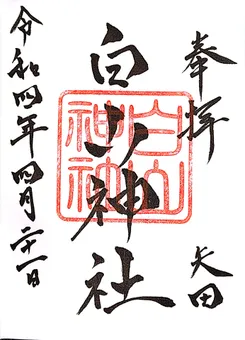 奉拝
矢田
白山神社
白山神社
令和四年四月二十一日